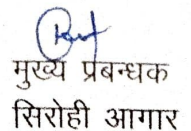 मुख्य प्रबन्धक
सिरोही आगार